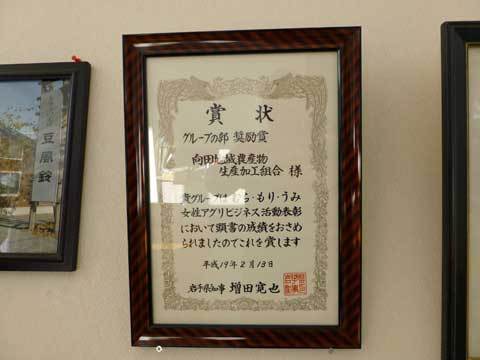 賞状
グループの部 奨励賞
向田地域農産物
生産加工組合 様
貴グループはむら・もり・うみ
女性アグリビジネス活動表彰
において頭書の成績をおさめ
られましたのでこれを賞します
平成19年2月13日
岩手県知事 増田寛也
豆風鈴